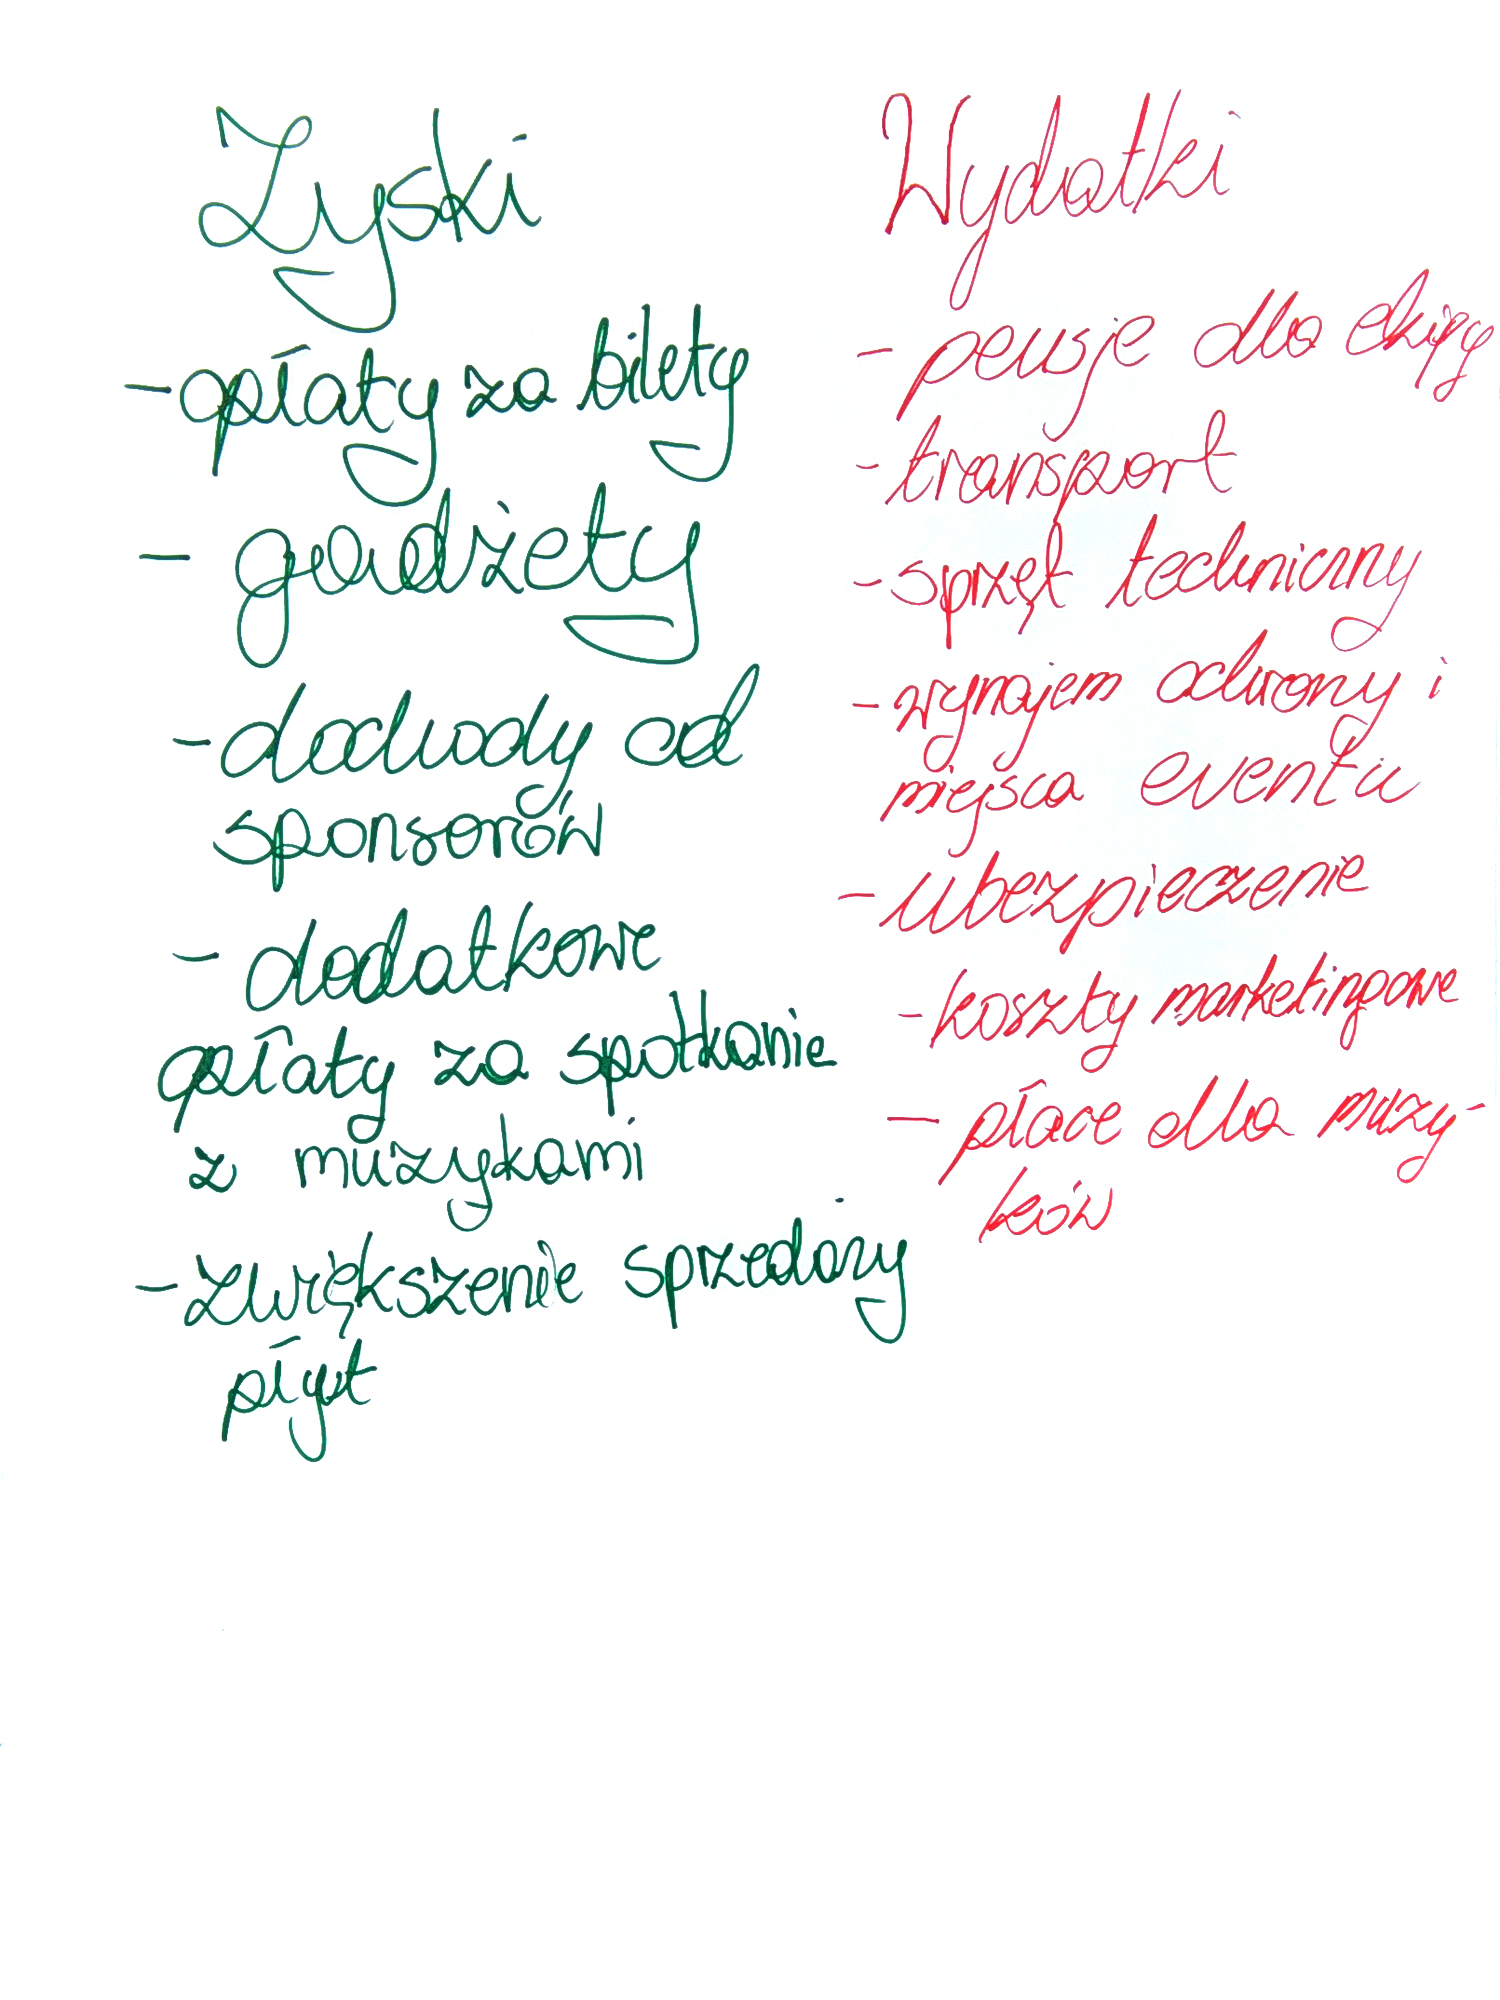 Zyski
- opłaty za bilety
- gadżety
- dochody od
sponsorów
- dodatkowe
opłaty za spotkanie
z muzykami
- zwiększenie sprzedaży
płyt
Wydatki
- pensje dla ekipy
- transport
- sprzęt techniczny
- wynajem ochrony i
miejsca eventu
- ubezpieczenie
- koszty marketingowe
- płace dla muzy-
ków